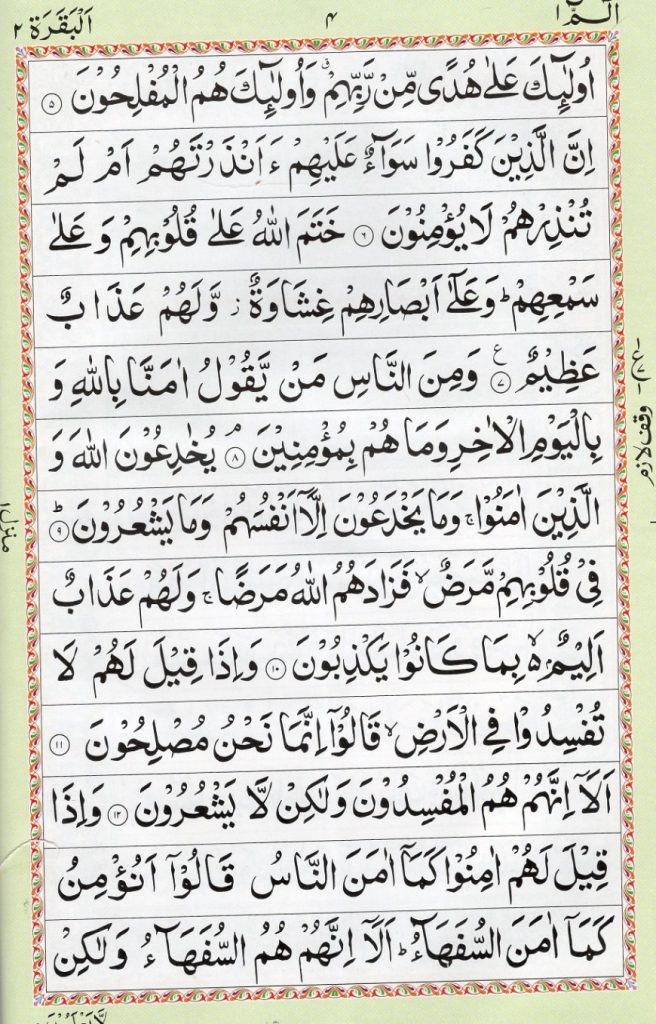 الٓمّٓ ۱ ۴ اَلْبَقَرَة ۲
اُولٰٓئِكَ عَلٰى هُدًى مِّنْ رَّبِّهِمْ ۗ وَاُولٰٓئِكَ هُمُ الْمُفْلِحُوْنَ ۵
اِنَّ الَّذِيْنَ كَفَرُوْا سَوَآءٌ عَلَيْهِمْ ءَاَنْذَرْتَهُمْ اَمْ لَمْ
تُنْذِرْهُمْ لَا يُؤْمِنُوْنَ ۶ خَتَمَ اللّٰهُ عَلٰى قُلُوْبِهِمْ وَعَلٰى
سَمْعِهِمْ ؕ وَعَلٰٓى اَبْصَارِهِمْ غِشَاوَةٌ ز وَّلَهُمْ عَذَابٌ
عَظِيْمٌ ۷ ع وَمِنَ النَّاسِ مَنْ يَّقُوْلُ اٰمَنَّا بِاللّٰهِ وَ
بِالْيَوْمِ الْاٰخِرِ وَمَا هُمْ بِمُؤْمِنِيْنَ ۘ ۸ يُخٰدِعُوْنَ اللّٰهَ وَ
الَّذِيْنَ اٰمَنُوْا ۚ وَمَا يَخْدَعُوْنَ اِلَّآ اَنْفُسَهُمْ وَمَا يَشْعُرُوْنَ ؕ ۹
فِىْ قُلُوْبِهِمْ مَّرَضٌ ۙ فَزَادَهُمُ اللّٰهُ مَرَضًا ۚ وَلَهُمْ عَذَابٌ
اَلِيْمٌ ۢ ۙ بِمَا كَانُوْا يَكْذِبُوْنَ ۱۰ وَاِذَا قِيْلَ لَهُمْ لَا
تُفْسِدُوْا فِى الْاَرْضِ ۙ قَالُوْٓا اِنَّمَا نَحْنُ مُصْلِحُوْنَ ۱۱
اَلَآ اِنَّهُمْ هُمُ الْمُفْسِدُوْنَ وَلٰكِنْ لَّا يَشْعُرُوْنَ ۱۲ وَاِذَا
قِيْلَ لَهُمْ اٰمِنُوْا كَمَآ اٰمَنَ النَّاسُ قَالُوْٓا اَنُؤْمِنُ
كَمَآ اٰمَنَ السُّفَهَآءُ ؕ اَلَآ اِنَّهُمْ هُمُ السُّفَهَآءُ وَلٰكِنْ
وقف لازم
منزل ۱